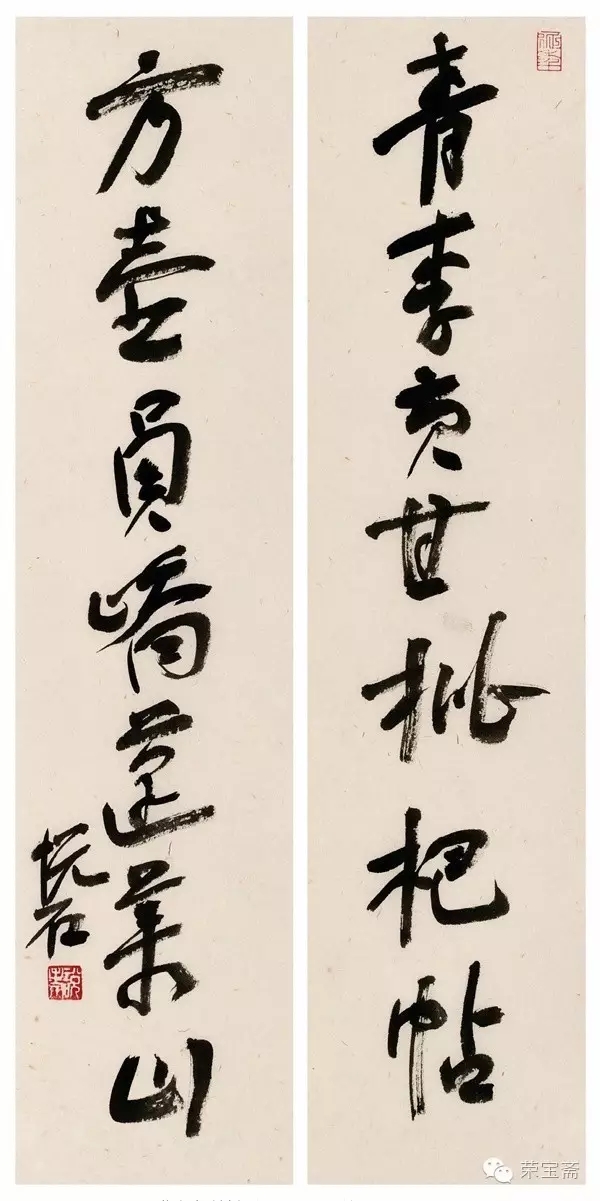 青李黄甘枇杷帖
方壺員嶠蓬萊山
荣宝斋